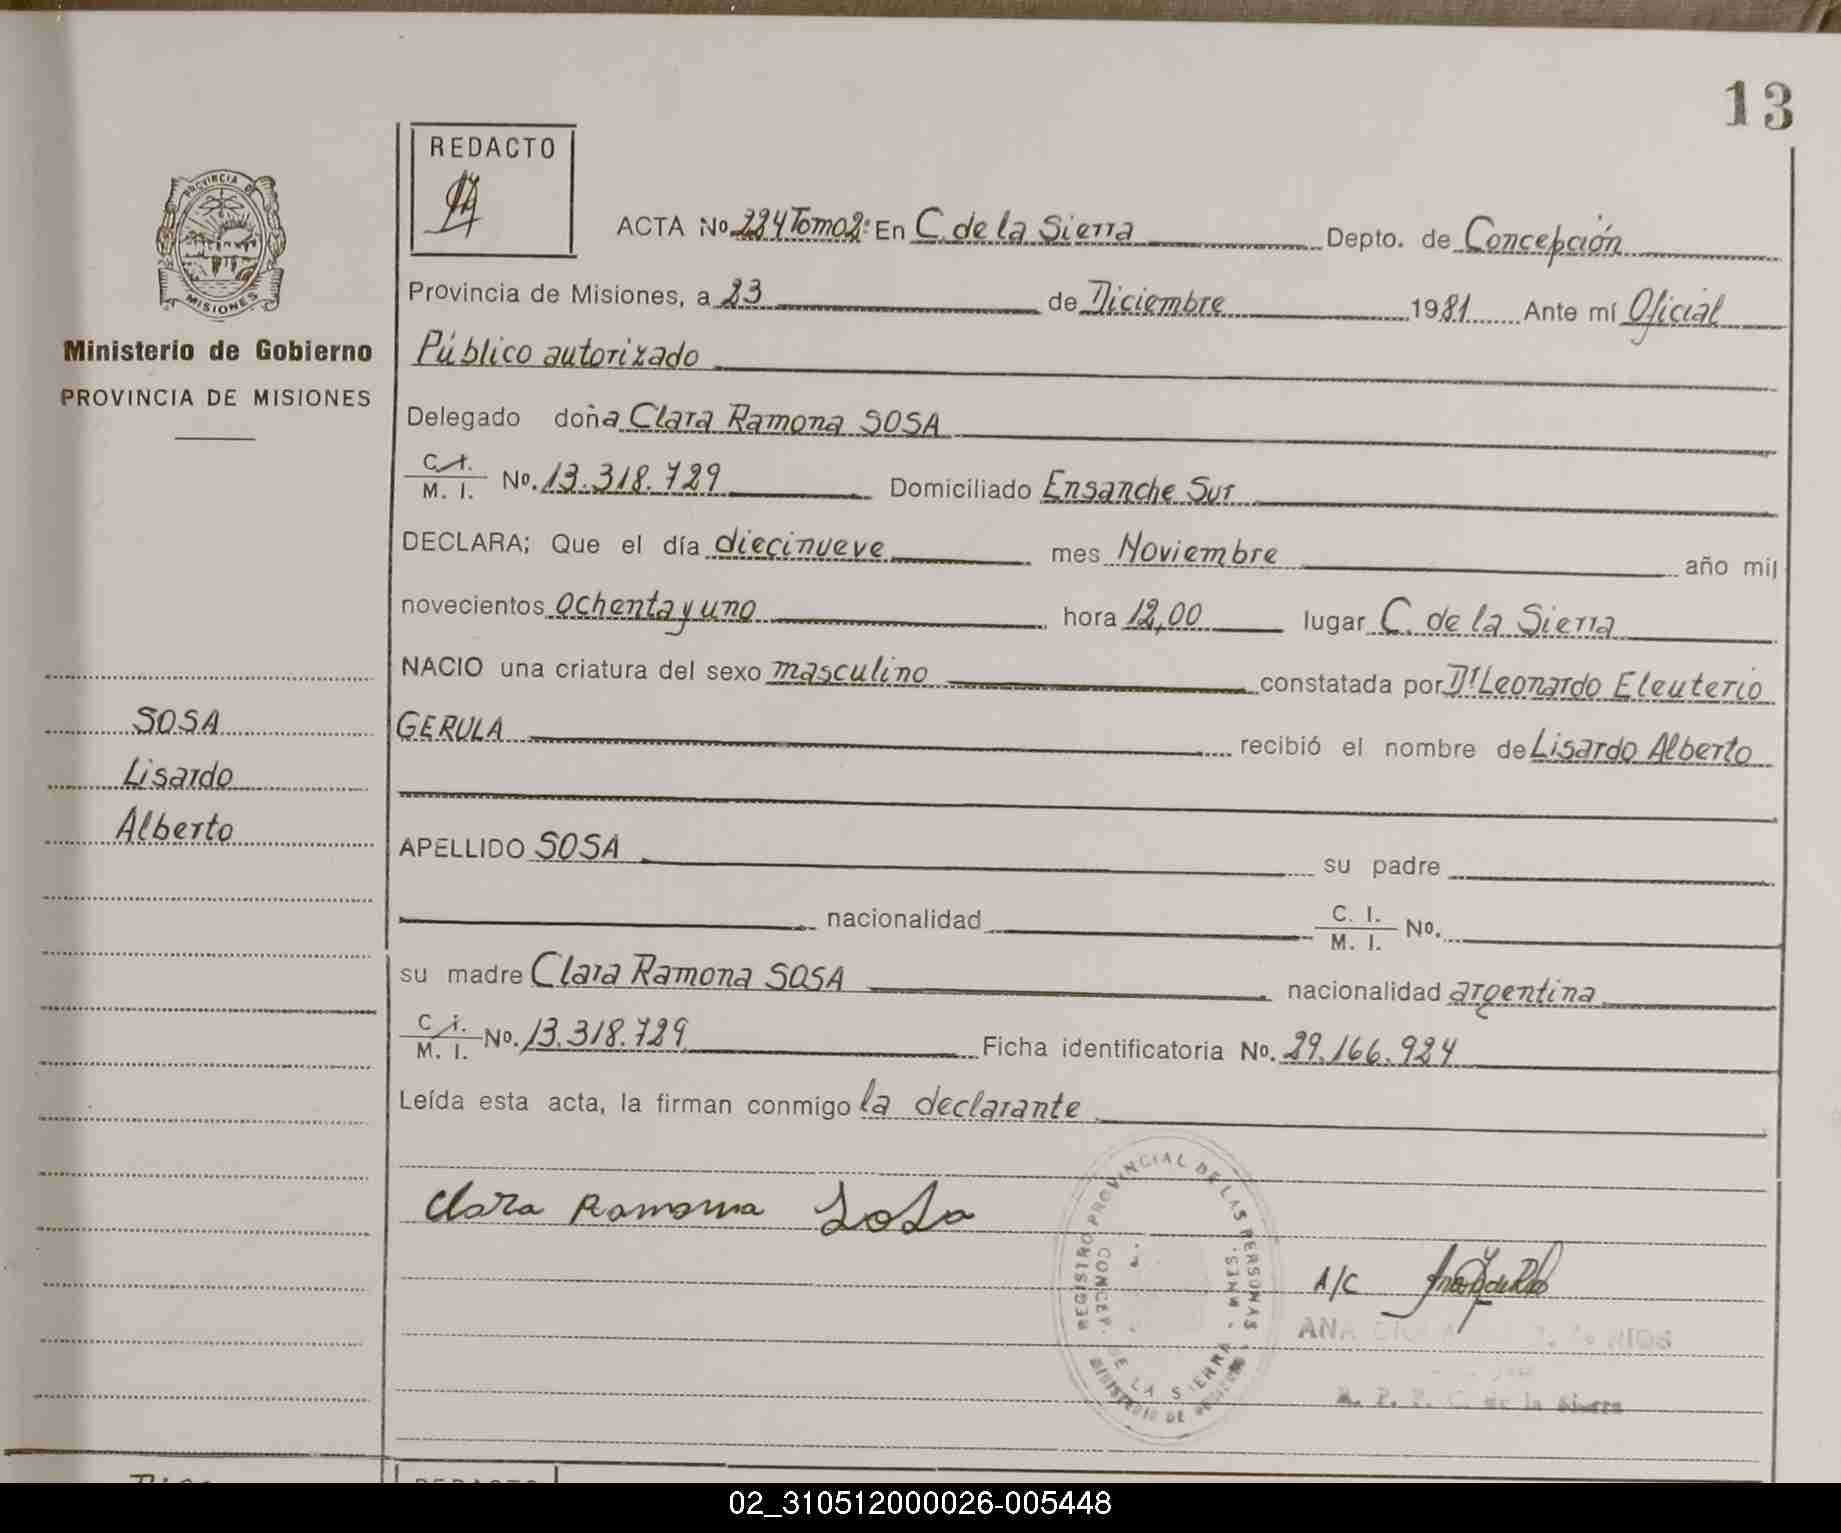 13
REDACTO
PROVINCIA DE
MISIONES
Ministerio de Gobierno
PROVINCIA DE MISIONES
ACTA No 224 Tomo 2º En C. de la Sierra Depto. de Concepción
Provincia de Misiones, a 23 de Diciembre 1981 Ante mí Oficial
Público autorizado
Delegado doña Clara Ramona SOSA
C. I. M. I. No. 13.318.729 Domiciliado Ensanche Sur
DECLARA; Que el día diecinueve mes Noviembre año mil
novecientos ochenta y uno hora 12,00 lugar C. de la Sierra
NACIO una criatura del sexo masculino constatada por Dr Leonardo Eleuterio
GERULA recibió el nombre de Lisardo Alberto
SOSA
Lisardo
Alberto
APELLIDO SOSA su padre
nacionalidad C. I. M. I. No.
su madre Clara Ramona SOSA nacionalidad argentina
C. I. M. I. No. 13.318.729 Ficha identificatoria No. 29.166.924
Leída esta acta, la firman conmigo la declarante
Clara Ramona Sosa
REGISTRO PROVINCIAL DE LAS PERSONAS
CONCEP. DE LA SIERRA - MNES.
MINISTERIO DE GOBIERNO
A/C
ANA RIOS
R. P. P. C. de la Sierra
REDACTO
02_310512000026-005448